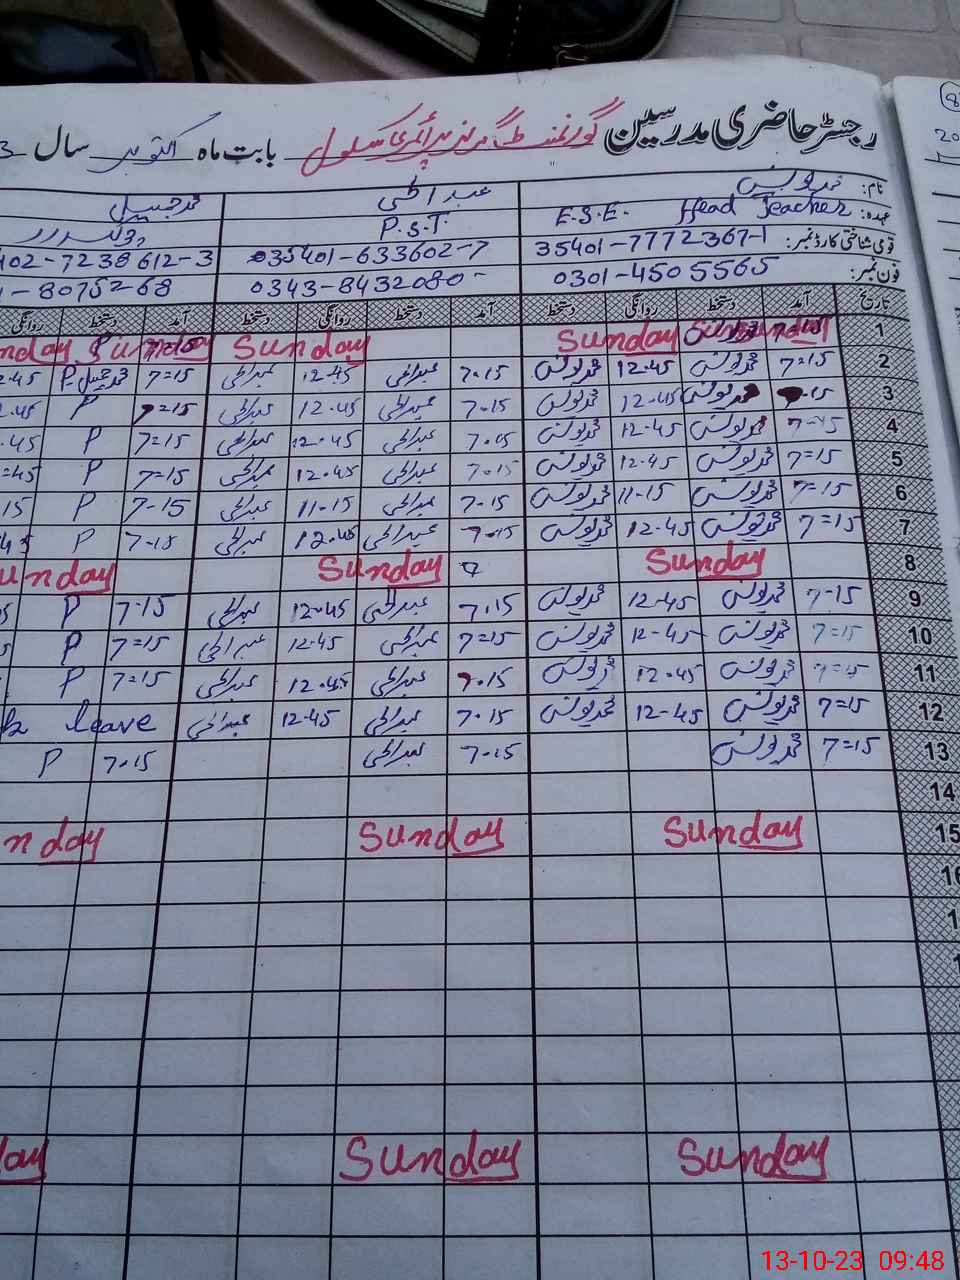 رجسٹر حاضری مدرسین گورنمنٹ گرلز پرائمری سکول بابت ماہ اکتوبر سال 3
نام: محمد یونس عبدالحئی محمد جمیل
عہدہ: E.S.E. Head Teacher P.S.T.
قومی شناختی کارڈ نمبر: 35401-7772367-1 035401-633602-7 402-7238612-3
فون نمبر: 0301-4505565 0343-8432080 -8075268
تاریخ آمد دستخط روانگی دستخط آمد دستخط روانگی دستخط آمد دستخط روانگی
1 Sunday Sunday Sunday Sunday Sunday
2 7=15 محمد یونس 12.45 محمد یونس 7.15 عبدالحئی 12.45 عبدالحئی 7=15 P محمد جمیل 2.45
3 .15 محمد یونس 12.45 محمد یونس 7.15 عبدالحئی 12.45 عبدالحئی 7=15 P 2.45
4 7-15 محمد یونس 12-45 محمد یونس 7.15 عبدالحئی 12.45 عبدالحئی 7=15 P .45
5 7=15 محمد یونس 12.45 محمد یونس 7.15 عبدالحئی 12.45 عبدالحئی 7=15 P =45
6 7=15 محمد یونس 11-15 محمد یونس 7.15 عبدالحئی 11.15 عبدالحئی 7-15 P 15
7 7=15 محمد یونس 12-45 محمد یونس 7.15 عبدالحئی 12.45 عبدالحئی 7.15 P 45
8 Sunday Sunday unday
9 7-15 محمد یونس 12-45 محمد یونس 7.15 عبدالحئی 12.45 عبدالحئی 7.15 P 5
10 7=15 محمد یونس 12-45 محمد یونس 7=15 عبدالحئی 12.45 عبدالحئی 7=15 P 5
11 7=15 محمد یونس 12.45 محمد یونس 7.15 عبدالحئی 12.45 عبدالحئی 7=15 P
12 7=15 محمد یونس 12-45 محمد یونس 7.15 عبدالحئی 12-45 عبدالحئی leave
13 7=15 محمد یونس 7.15 عبدالحئی 7.15 P
14
15 Sunday Sunday nday
16
1
1
Sunday Sunday day
13-10-23 09:48